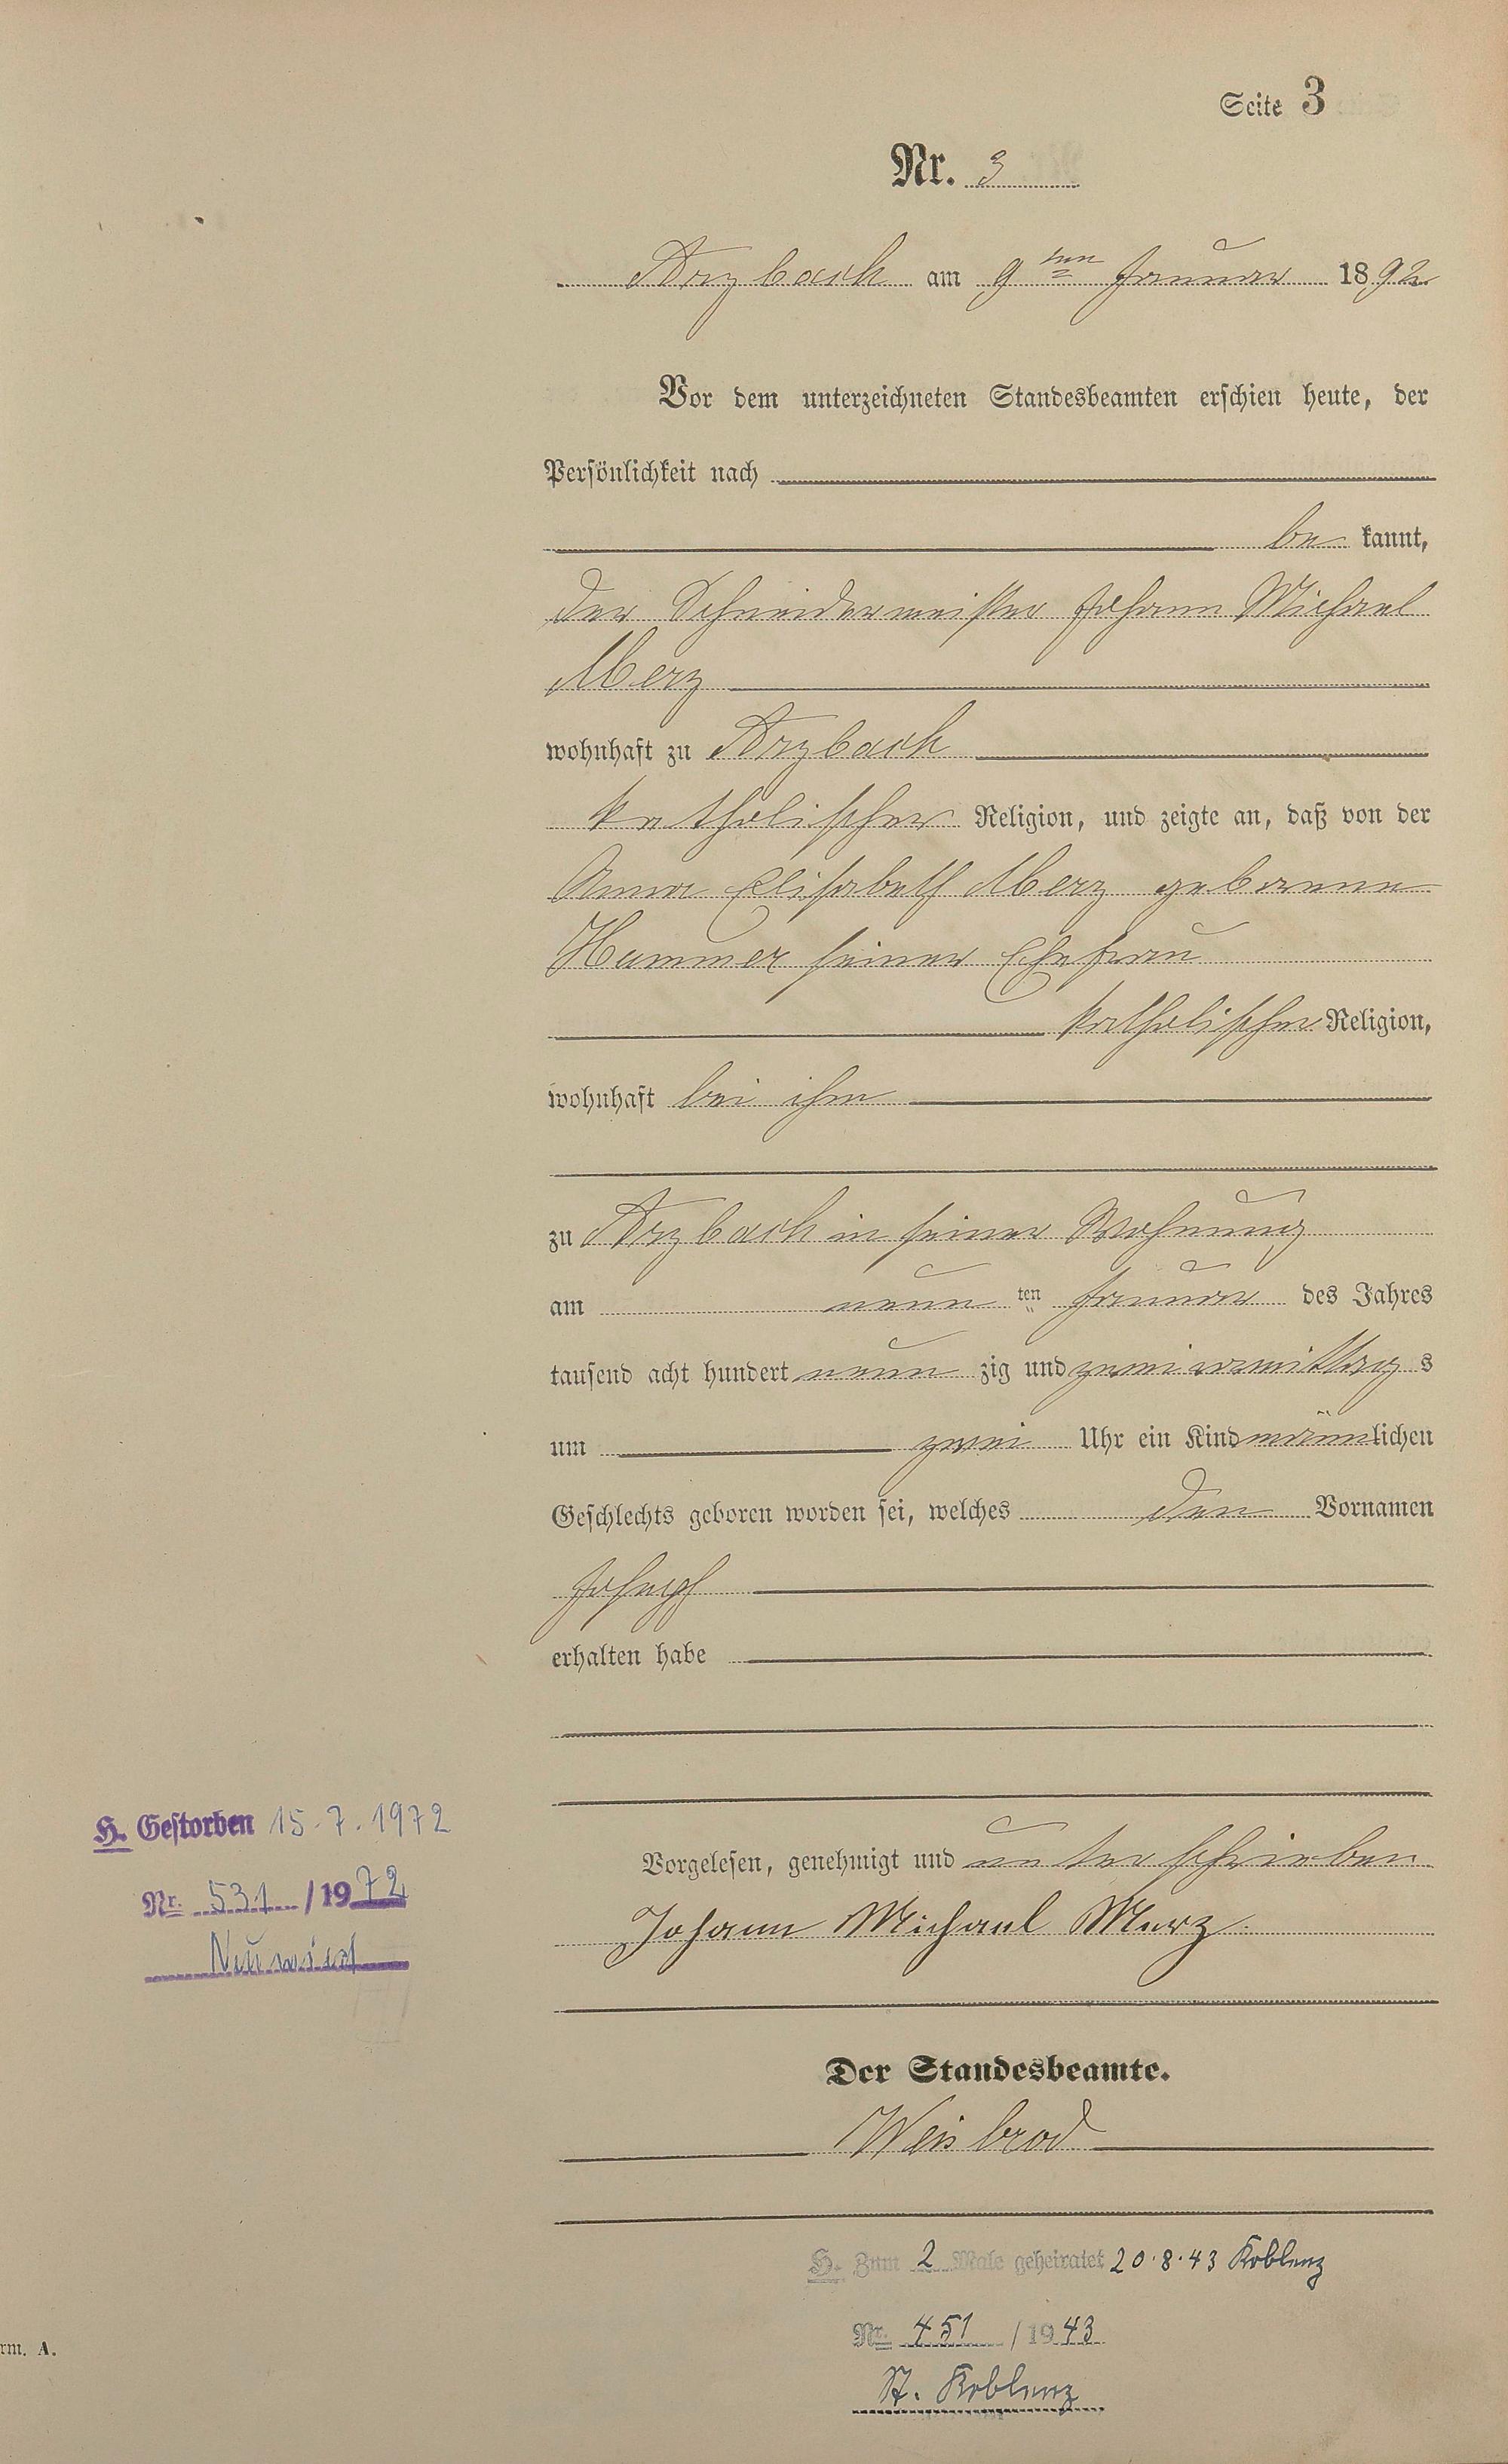 Seite 3
Nr. 3
Arzbach am 9ten Januar 1892
Vor dem unterzeichneten Standesbeamten erschien heute, der
Persönlichkeit nach
be kannt,
der Schneidermeister Johann Michael
Merz
wohnhaft zu Arzbach
katholischer Religion, und zeigte an, daß von der
Anna Elisabeth Merz geborene
Hammer seiner Ehefrau
katholischer Religion,
wohnhaft bei ihm
zu Arzbach in seiner Wohnung
am neun ten Januar des Jahres
tausend acht hundert neun zig und zwei vormittag s
um zwei Uhr ein Kind männlichen
Geschlechts geboren worden sei, welches den Vornamen
Joseph
erhalten habe
H. Gestorben 15.7.1972
Nr. 531 / 1972
Neuwied
Vorgelesen, genehmigt und unterschrieben
Johann Michael Merz
Der Standesbeamte.
Weisbrod
H. Zum 2 Male geheiratet 20.8.43 Koblenz
Nr. 451 / 1943
St. Koblenz
rm. A.